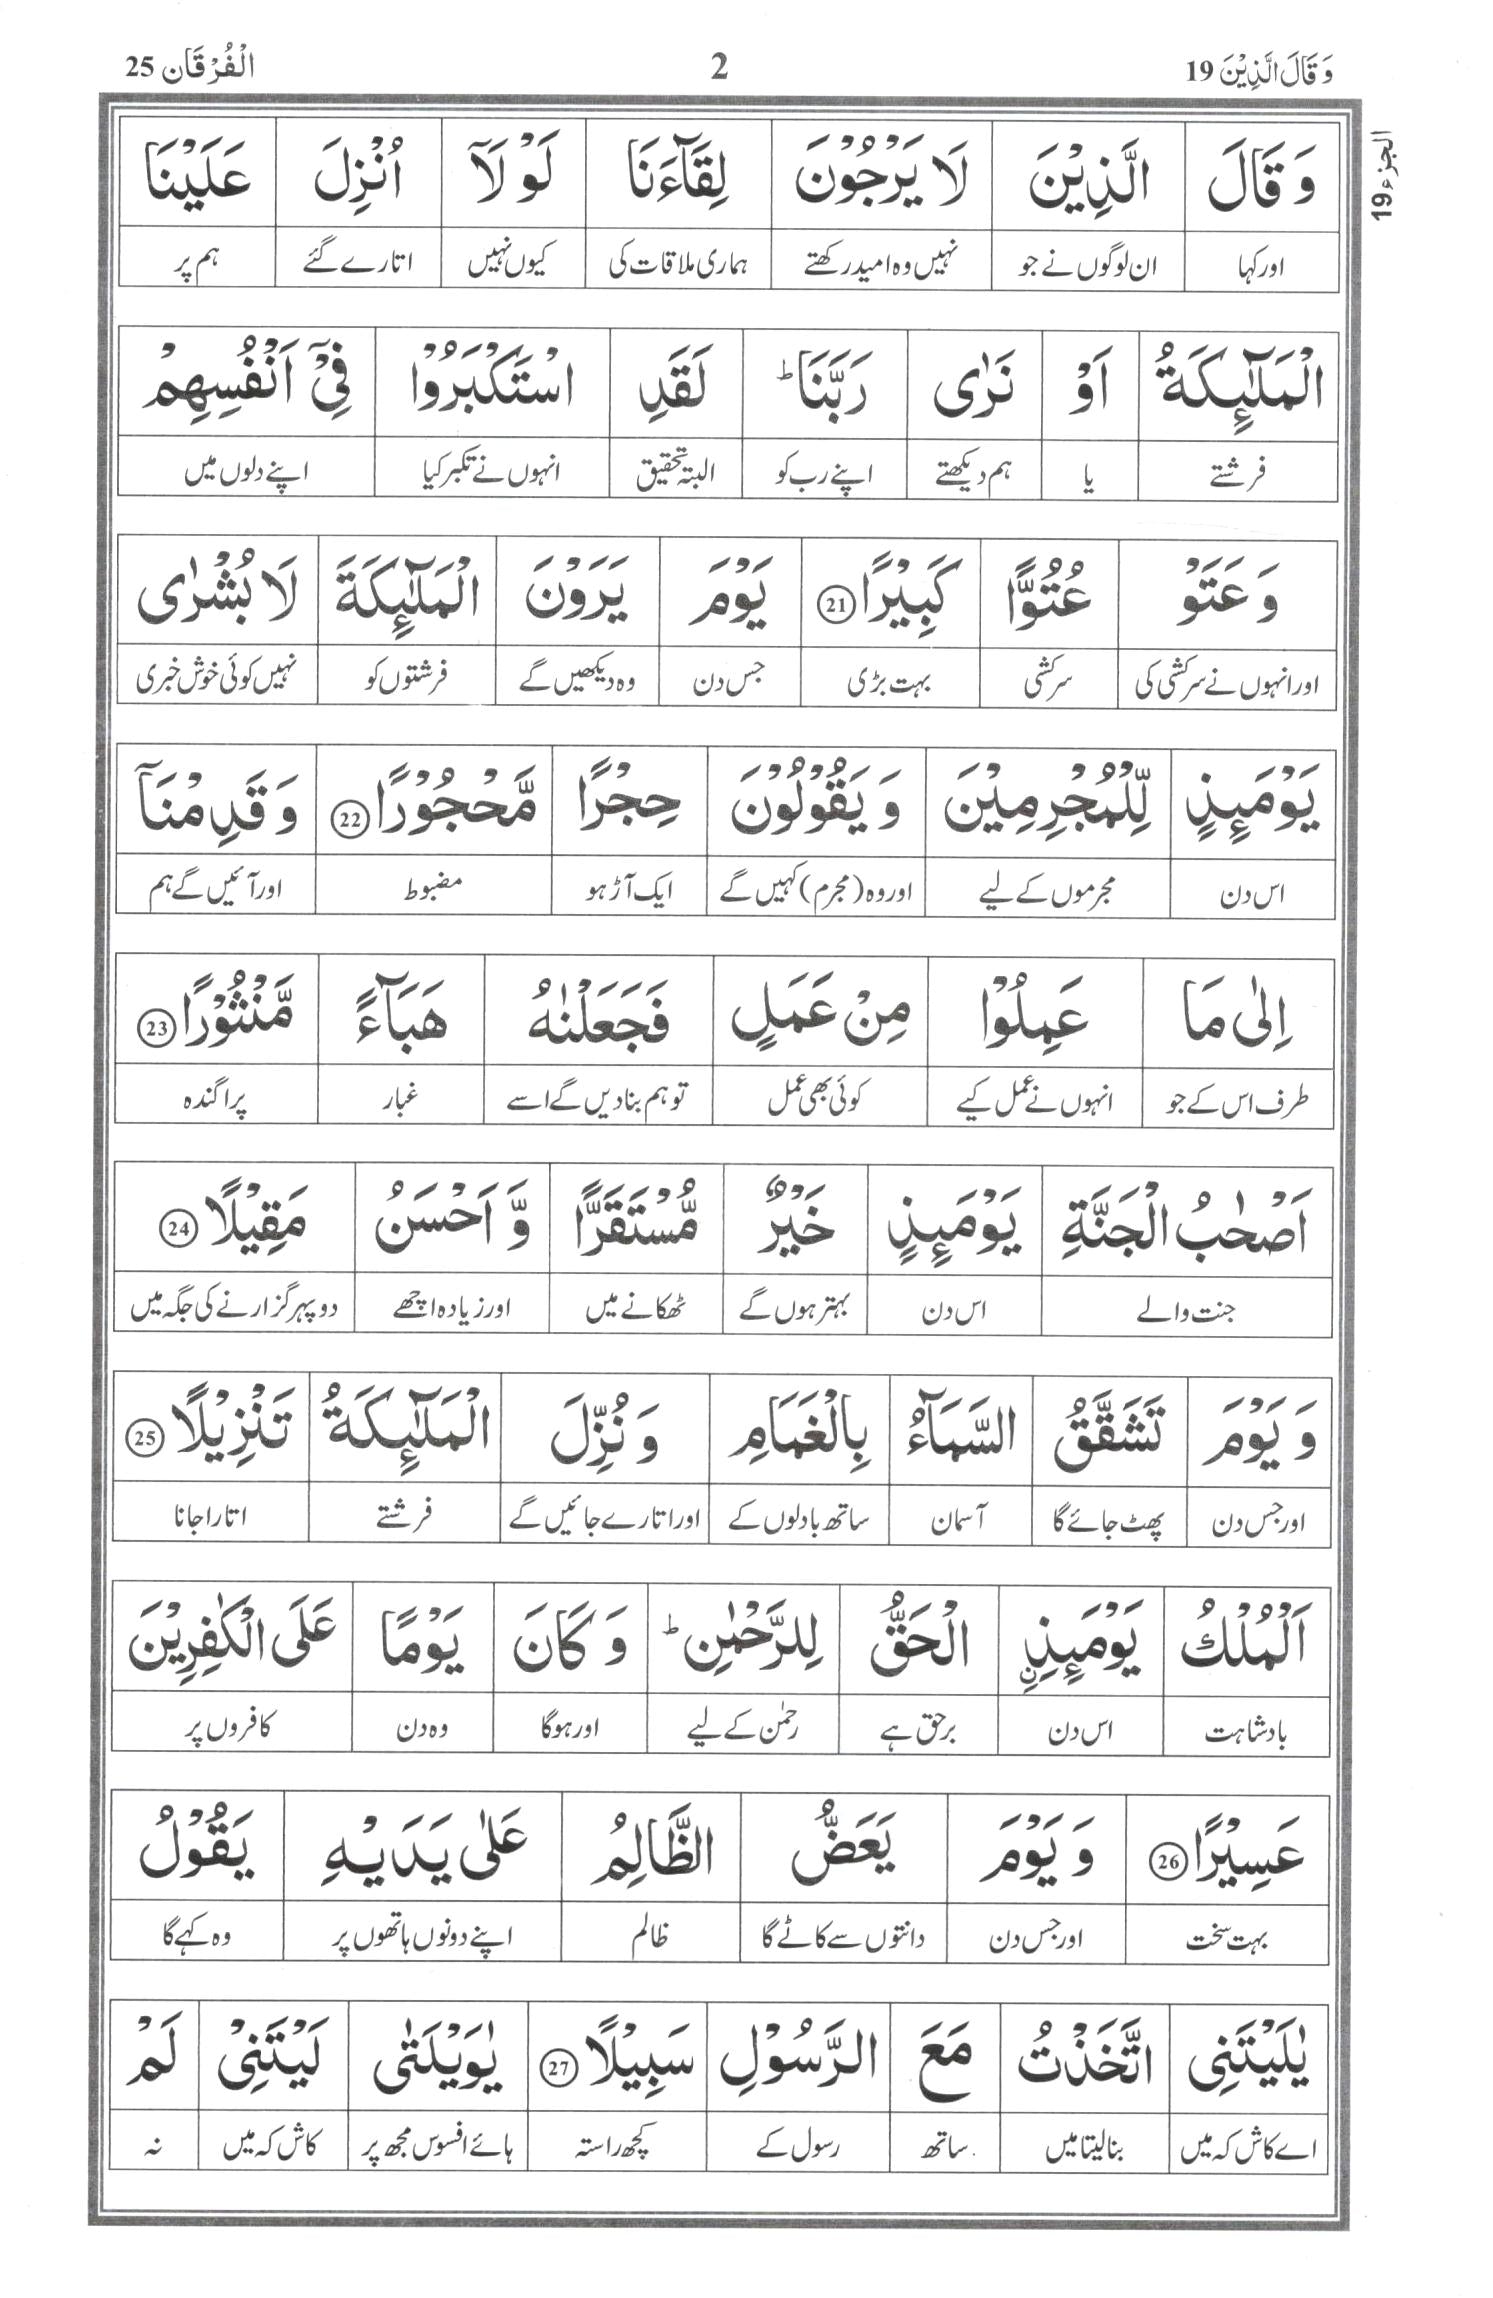 وَقَالَ الَّذِيْنَ 19 2 الْفُرْقَان 25
الجزء 19
وَ قَالَ الَّذِيْنَ لَا يَرْجُوْنَ لِقَآءَنَا لَوْ لَآ اُنْزِلَ عَلَيْنَا
اور کہا ان لوگوں نے جو نہیں وہ امید رکھتے ہماری ملاقات کی کیوں نہیں اتارے گئے ہم پر
الْمَلٰٓىِٕكَةُ اَوْ نَرٰى رَبَّنَا ؕ لَقَدِ اسْتَكْبَرُوْا فِيْۤ اَنْفُسِهِمْ
فرشتے یا ہم دیکھتے اپنے رب کو البتہ تحقیق انہوں نے تکبر کیا اپنے دلوں میں
وَ عَتَوْ عُتُوًّا كَبِيْرًا 21 يَوْمَ يَرَوْنَ الْمَلٰٓىِٕكَةَ لَا بُشْرٰى
اور انہوں نے سرکشی کی سرکشی بہت بڑی جس دن وہ دیکھیں گے فرشتوں کو نہیں کوئی خوش خبری
يَوْمَىِٕذٍ لِّلْمُجْرِمِيْنَ وَ يَقُوْلُوْنَ حِجْرًا مَّحْجُوْرًا 22 وَ قَدِمْنَاۤ
اس دن مجرموں کے لیے اور وہ (مجرم) کہیں گے ایک آڑ ہو مضبوط اور آئیں گے ہم
اِلٰى مَا عَمِلُوْا مِنْ عَمَلٍ فَجَعَلْنٰهُ هَبَآءً مَّنْثُوْرًا 23
طرف اس کے جو انہوں نے عمل کیے کوئی بھی عمل تو ہم بنا دیں گے اسے غبار پراگندہ
اَصْحٰبُ الْجَنَّةِ يَوْمَىِٕذٍ خَيْرٌ مُّسْتَقَرًّا وَّ اَحْسَنُ مَقِيْلًا 24
جنت والے اس دن بہتر ہوں گے ٹھکانے میں اور زیادہ اچھے دوپہر گزارنے کی جگہ میں
وَ يَوْمَ تَشَقَّقُ السَّمَآءُ بِالْغَمَامِ وَ نُزِّلَ الْمَلٰٓىِٕكَةُ تَنْزِيْلًا 25
اور جس دن پھٹ جائے گا آسمان ساتھ بادلوں کے اور اتارے جائیں گے فرشتے اتارا جانا
اَلْمُلْكُ يَوْمَىِٕذِنِ الْحَقُّ لِلرَّحْمٰنِ ؕ وَ كَانَ يَوْمًا عَلَى الْكٰفِرِيْنَ
بادشاہت اس دن برحق ہے رحمٰن کے لیے اور ہوگا وہ دن کافروں پر
عَسِيْرًا 26 وَ يَوْمَ يَعَضُّ الظَّالِمُ عَلٰى يَدَيْهِ يَقُوْلُ
بہت سخت اور جس دن دانتوں سے کاٹے گا ظالم اپنے دونوں ہاتھوں پر وہ کہے گا
يٰلَيْتَنِى اتَّخَذْتُ مَعَ الرَّسُوْلِ سَبِيْلًا 27 يٰوَيْلَتٰى لَيْتَنِىْ لَمْ
اے کاش کہ میں بنا لیتا میں ساتھ رسول کے کچھ راستہ ہائے افسوس مجھ پر کاش کہ میں نہ